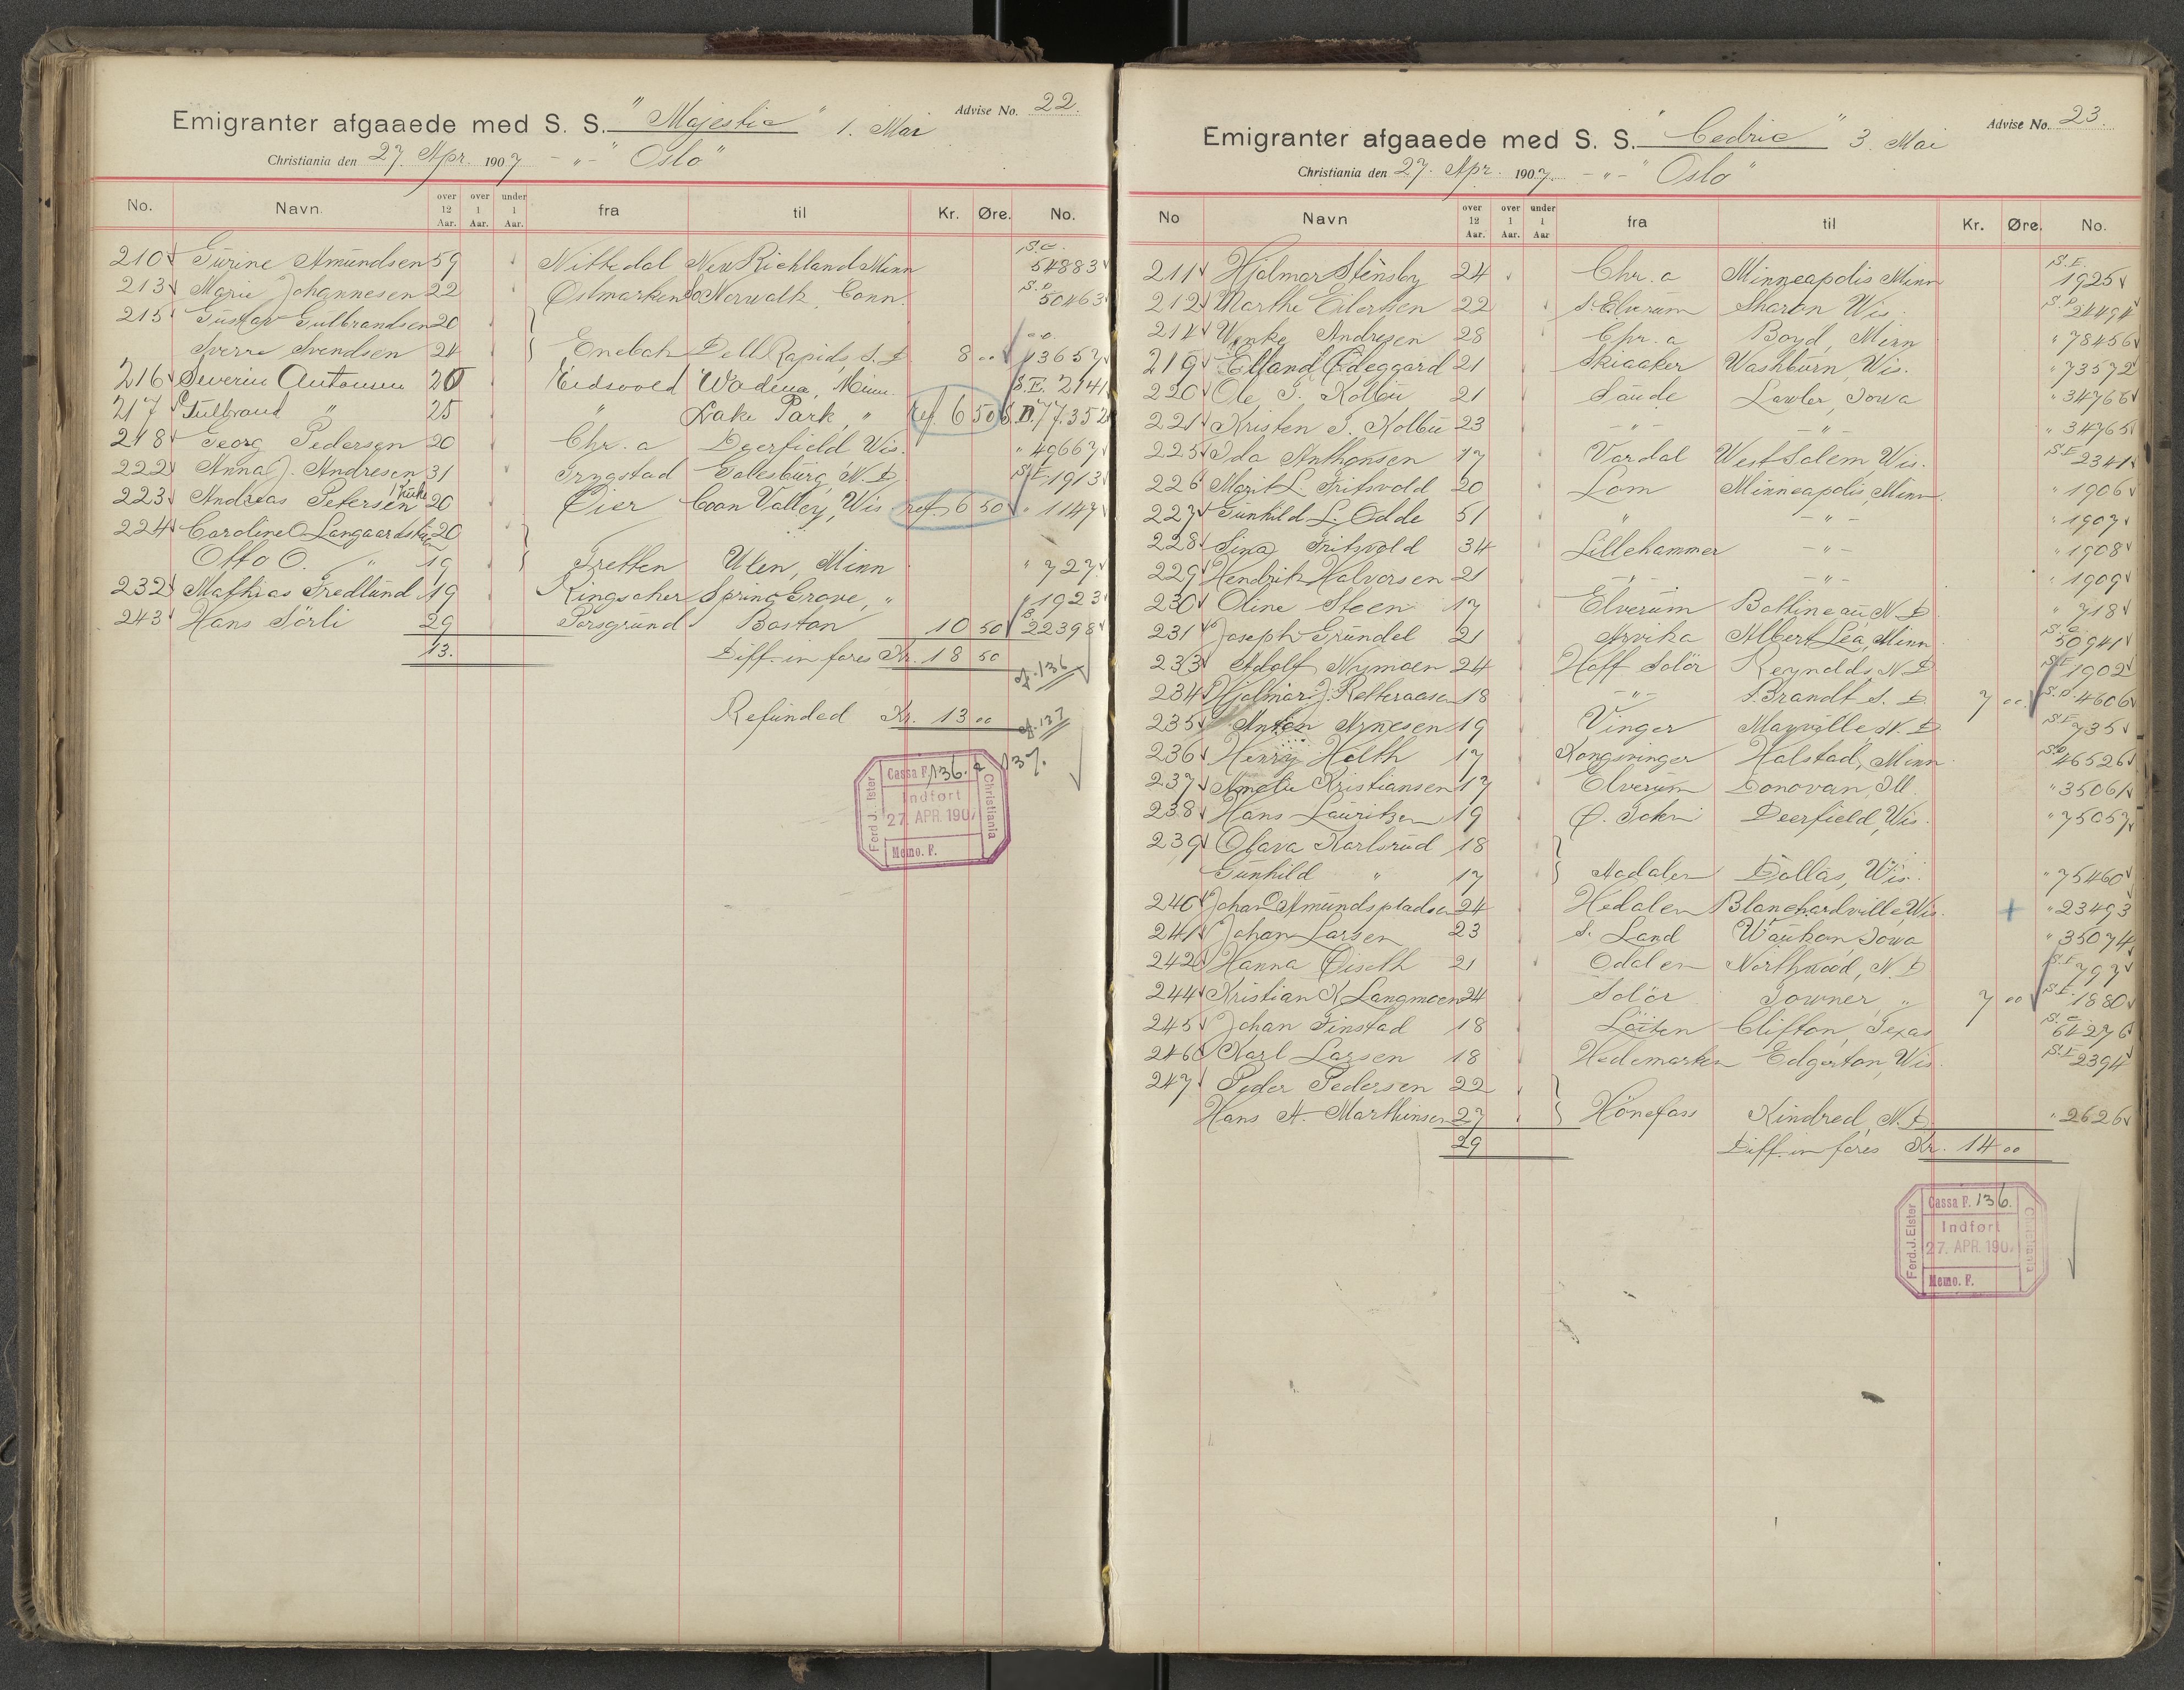 Advise No. 22.
Emigranter afgaaede med S. S. "Majestic" 1. Mai
Christiania den 27. Apr. 1907 - " - "Oslo"
No. Navn. over 12 Aar. over 1 Aar. under 1 Aar. fra til Kr. Øre. No.
210 Gurine Amundsen 59 Nittedal New Richland Minn S.C. 54883
213 Marie Johannesen 22 Østmarken So Norwalk, Conn. S.D. 50463
215 Gustav Gulbrandsen 20
Sverre Svendsen 24 } Enebak Dell Rapids, S. D. 8 00 13657
216 Severin Antonsen 20 Eidsvold Wadena, Minn. S.E. 2141
217 Gulbrand " 25 " Lake Park, " ref. 6 50 S.D. 77.352
218 Georg Pedersen 20 Chr.a Deerfield Wis. " 49667
222 Anna J. Andresen 31 Trygstad Galesburg, N. D. S.E. 1913
223 Andreas Petersen 20 Øier Coon Valley, Wis ref. 6 50 " 1147
224 Caroline O. Langaardstuen 20
Otto O. " 19 } Tretten Ulen, Minn " 727
232 Mathias Fredlund 19 Ringsaker Spring Grove, " " 1923
243 Hans Sörli 29 Porsgrund Boston 10 50 B 22398
13. Diff. in fares Kr. 18 50 cf. 136
Refunded Kr. 13 00 cf. 137
Cassa F. 136. & 137.
Indført
27. APR. 1907
Memo. F.
Ferd. J. Elster
Christiania
Advise No. 23.
Emigranter afgaaede med S. S. "Cedric" 3. Mai
Christiania den 27. Apr. 1907. - " - "Oslo"
No Navn over 12 Aar. over 1 Aar. under 1 Aar fra til Kr. Øre. No.
211 Hjalmar Stensby 24 Chr.a Minneapolis Minn S.E. 1925
212 Marthe Eilertsen 22 S. Elverum Sharon Wis. S.D. 24494
214 Wenke Andresen 28 Chr.a Boyd, Minn " 78456
219 Elland Ødeggard 21 Skiaaker Washburn, Wis. " 73572
220 Ole T. Kolbu 21 Saude Lawler, Iowa " 34766
221 Kristen T. Kolbu 23 - " - - " - " 34765
225 Ida Anthonsen 17 Vardal West Salem, Wis. S.E. 2341
226 Marit L. Fritsvold 20 Lom Minneapolis, Minn. " 1906
227 Gunhild L. Odde 51 " - " - " 1907
228 Lina Fritsvold 34 Lillehammer - " - " 1908
229 Hendrik Halvorsen 21 - " - - " - " 1909
230 Oline Steen 17 Elverum Bottineau, N. D " 718
231 Joseph Gründel 21 Arvika Albert Lea, Minn S.C. 50941
233 Adolf Nymoen 24 Hoff Solör Reynolds, N. D S.E. 1902
234 Hjalmar J. Retteraasen 18 - " - Brandt S. D. 7 00 S.D. 4606
235 Anton Arnesen 19 Vinger Mayville N. D S.E. 735
236 Henry Holth 17 Kongsvinger Halstad, Minn S.D. 46526
237 Amelie Kristiansen 17 Elverum Donovan, Ill. " 35061
238 Hans Lauritzen 19 Ø. Toten Deerfield, Wis. " 75057
239 Olava Karlsrud 18
Gunhild " 17 } Aadalen Dallas, Wis. " 75460
240 Johan O. Amundspladsen 24 Hedalen Blanchardville, Wis. + " 23493
241 Johan Larsen 23 S. Land Waukon, Iowa " 35074
242 Hanna Øiseth 21 Odalen Northwood, N. D S.E. 797
244 Kristian K. Langmoen 24 Solör Towner, " 7 00 S.E. 1880
245 Johan Finstad 18 Löiten Clifton, Texas S.C. 64276
246 Karl Larsen 18 Hedemarken Edgerton, Wis. S.E. 2394
247 Peder Pedersen 22
Hans A. Marthinsen 27 } Hönefoss Kindred, N. D. " 2626
29 Diff. in fares Kr. 14 00
Cassa F. 136.
Indført
27. APR. 1907
Memo. F.
Ferd. J. Elster
Christiania